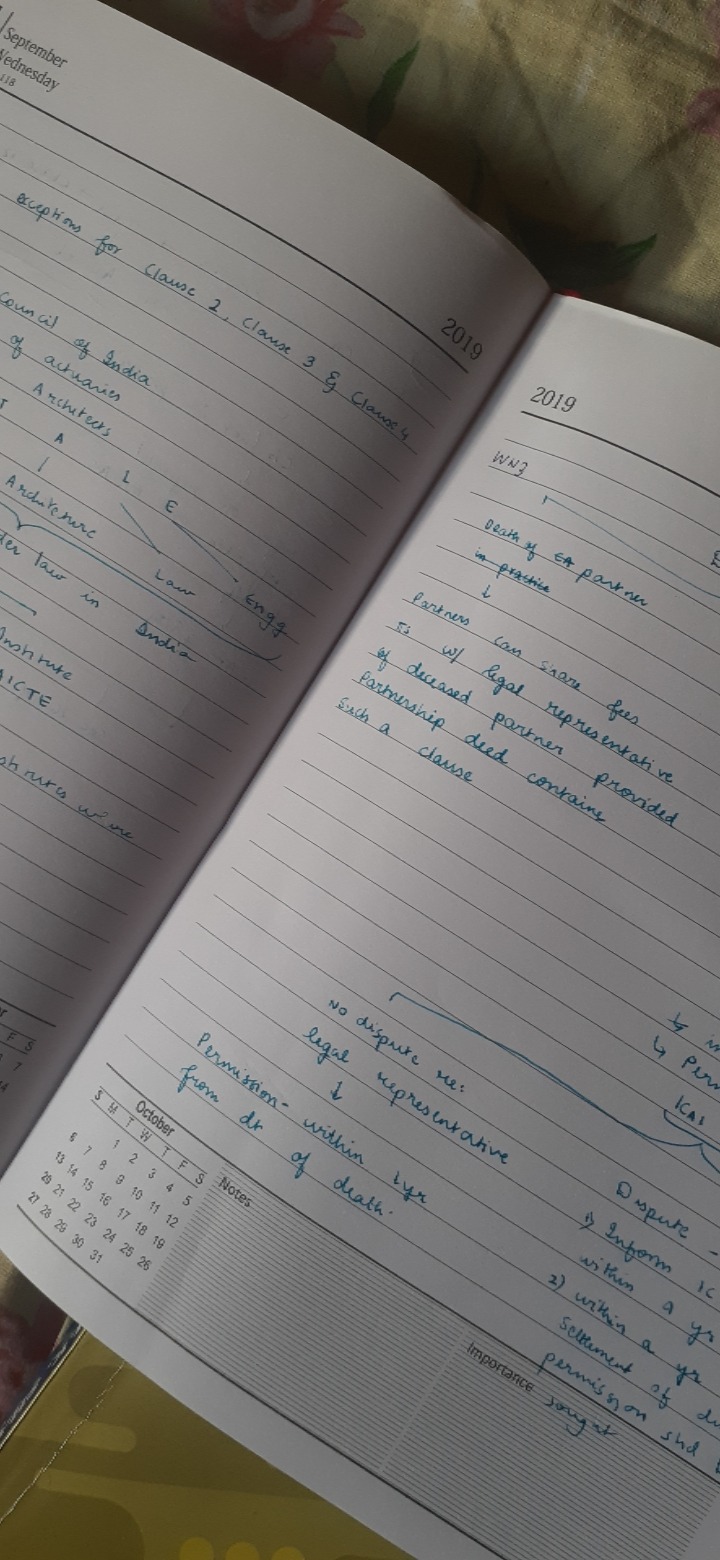 September
Wednesday
2019
exceptions for Clause 2, Clause 3 & Clause 4
Council of India
of actuaries
Architects
A L E
Architecture Law Engg
law in India
Institute
AICTE
where
F S
7
14
2019
WN3
Death of CA partner
in practice
↓
Partners can share fees
w/ legal representative
of deceased partner provided
Partnership deed contains
Such a clause
↳ in
↳ Perm
No dispute re:
legal representative
↓
Permission - within 1yr
from dt of death.
Dispute -
1) Inform IC
within a yr
2) within a yr
Settlement of di
permission shd
sought
October
S M T W T F S
1 2 3 4 5
6 7 8 9 10 11 12
13 14 15 16 17 18 19
20 21 22 23 24 25 26
27 28 29 30 31
Notes
Importance